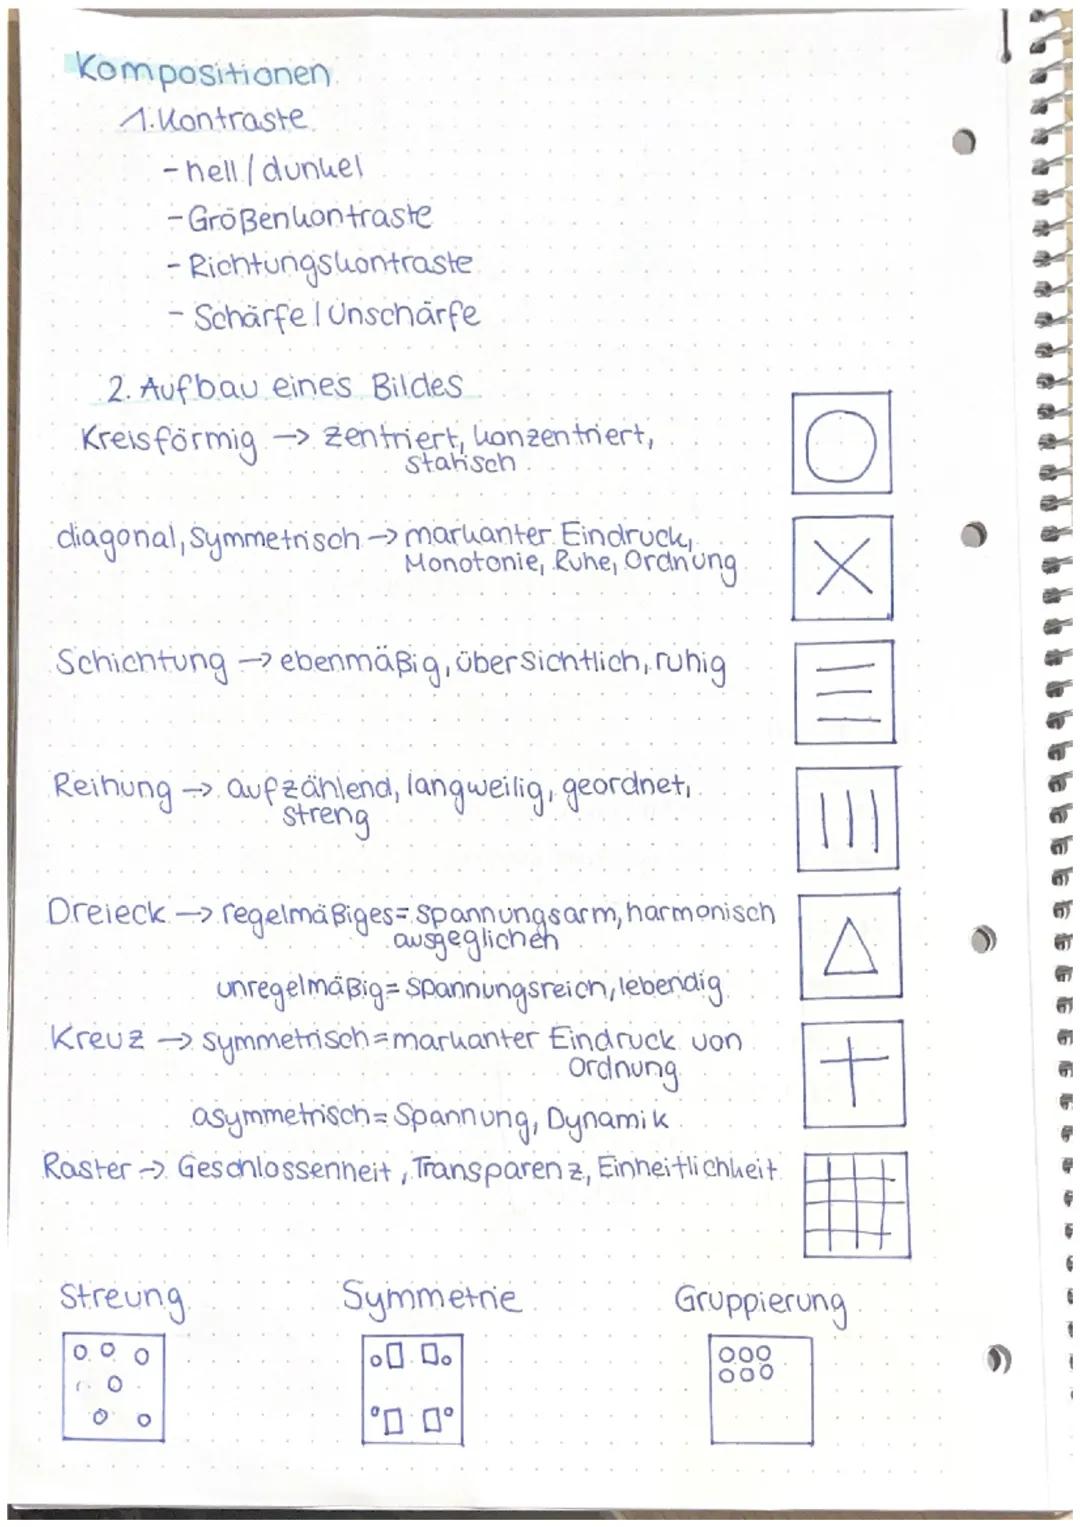 Kompositionen
1. Kontraste
- hell / dunkel
- Größenkontraste
- Richtungskontraste
- Schärfe / Unschärfe
2. Aufbau eines Bildes
Kreisförmig → zentriert, konzentriert,
statisch
diagonal, Symmetrisch → markanter Eindruck,
Monotonie, Ruhe, Ordnung
Schichtung → ebenmäßig, übersichtlich, ruhig
Reihung → aufzählend, langweilig, geordnet,
streng
Dreieck → regelmäßiges = spannungsarm, harmonisch
ausgeglichen
unregelmäßig = spannungsreich, lebendig
Kreuz → symmetrisch = markanter Eindruck von
Ordnung
asymmetrisch = Spannung, Dynamik
Raster → Geschlossenheit, Transparenz, Einheitlichkeit
Streung Symmetrie Gruppierung